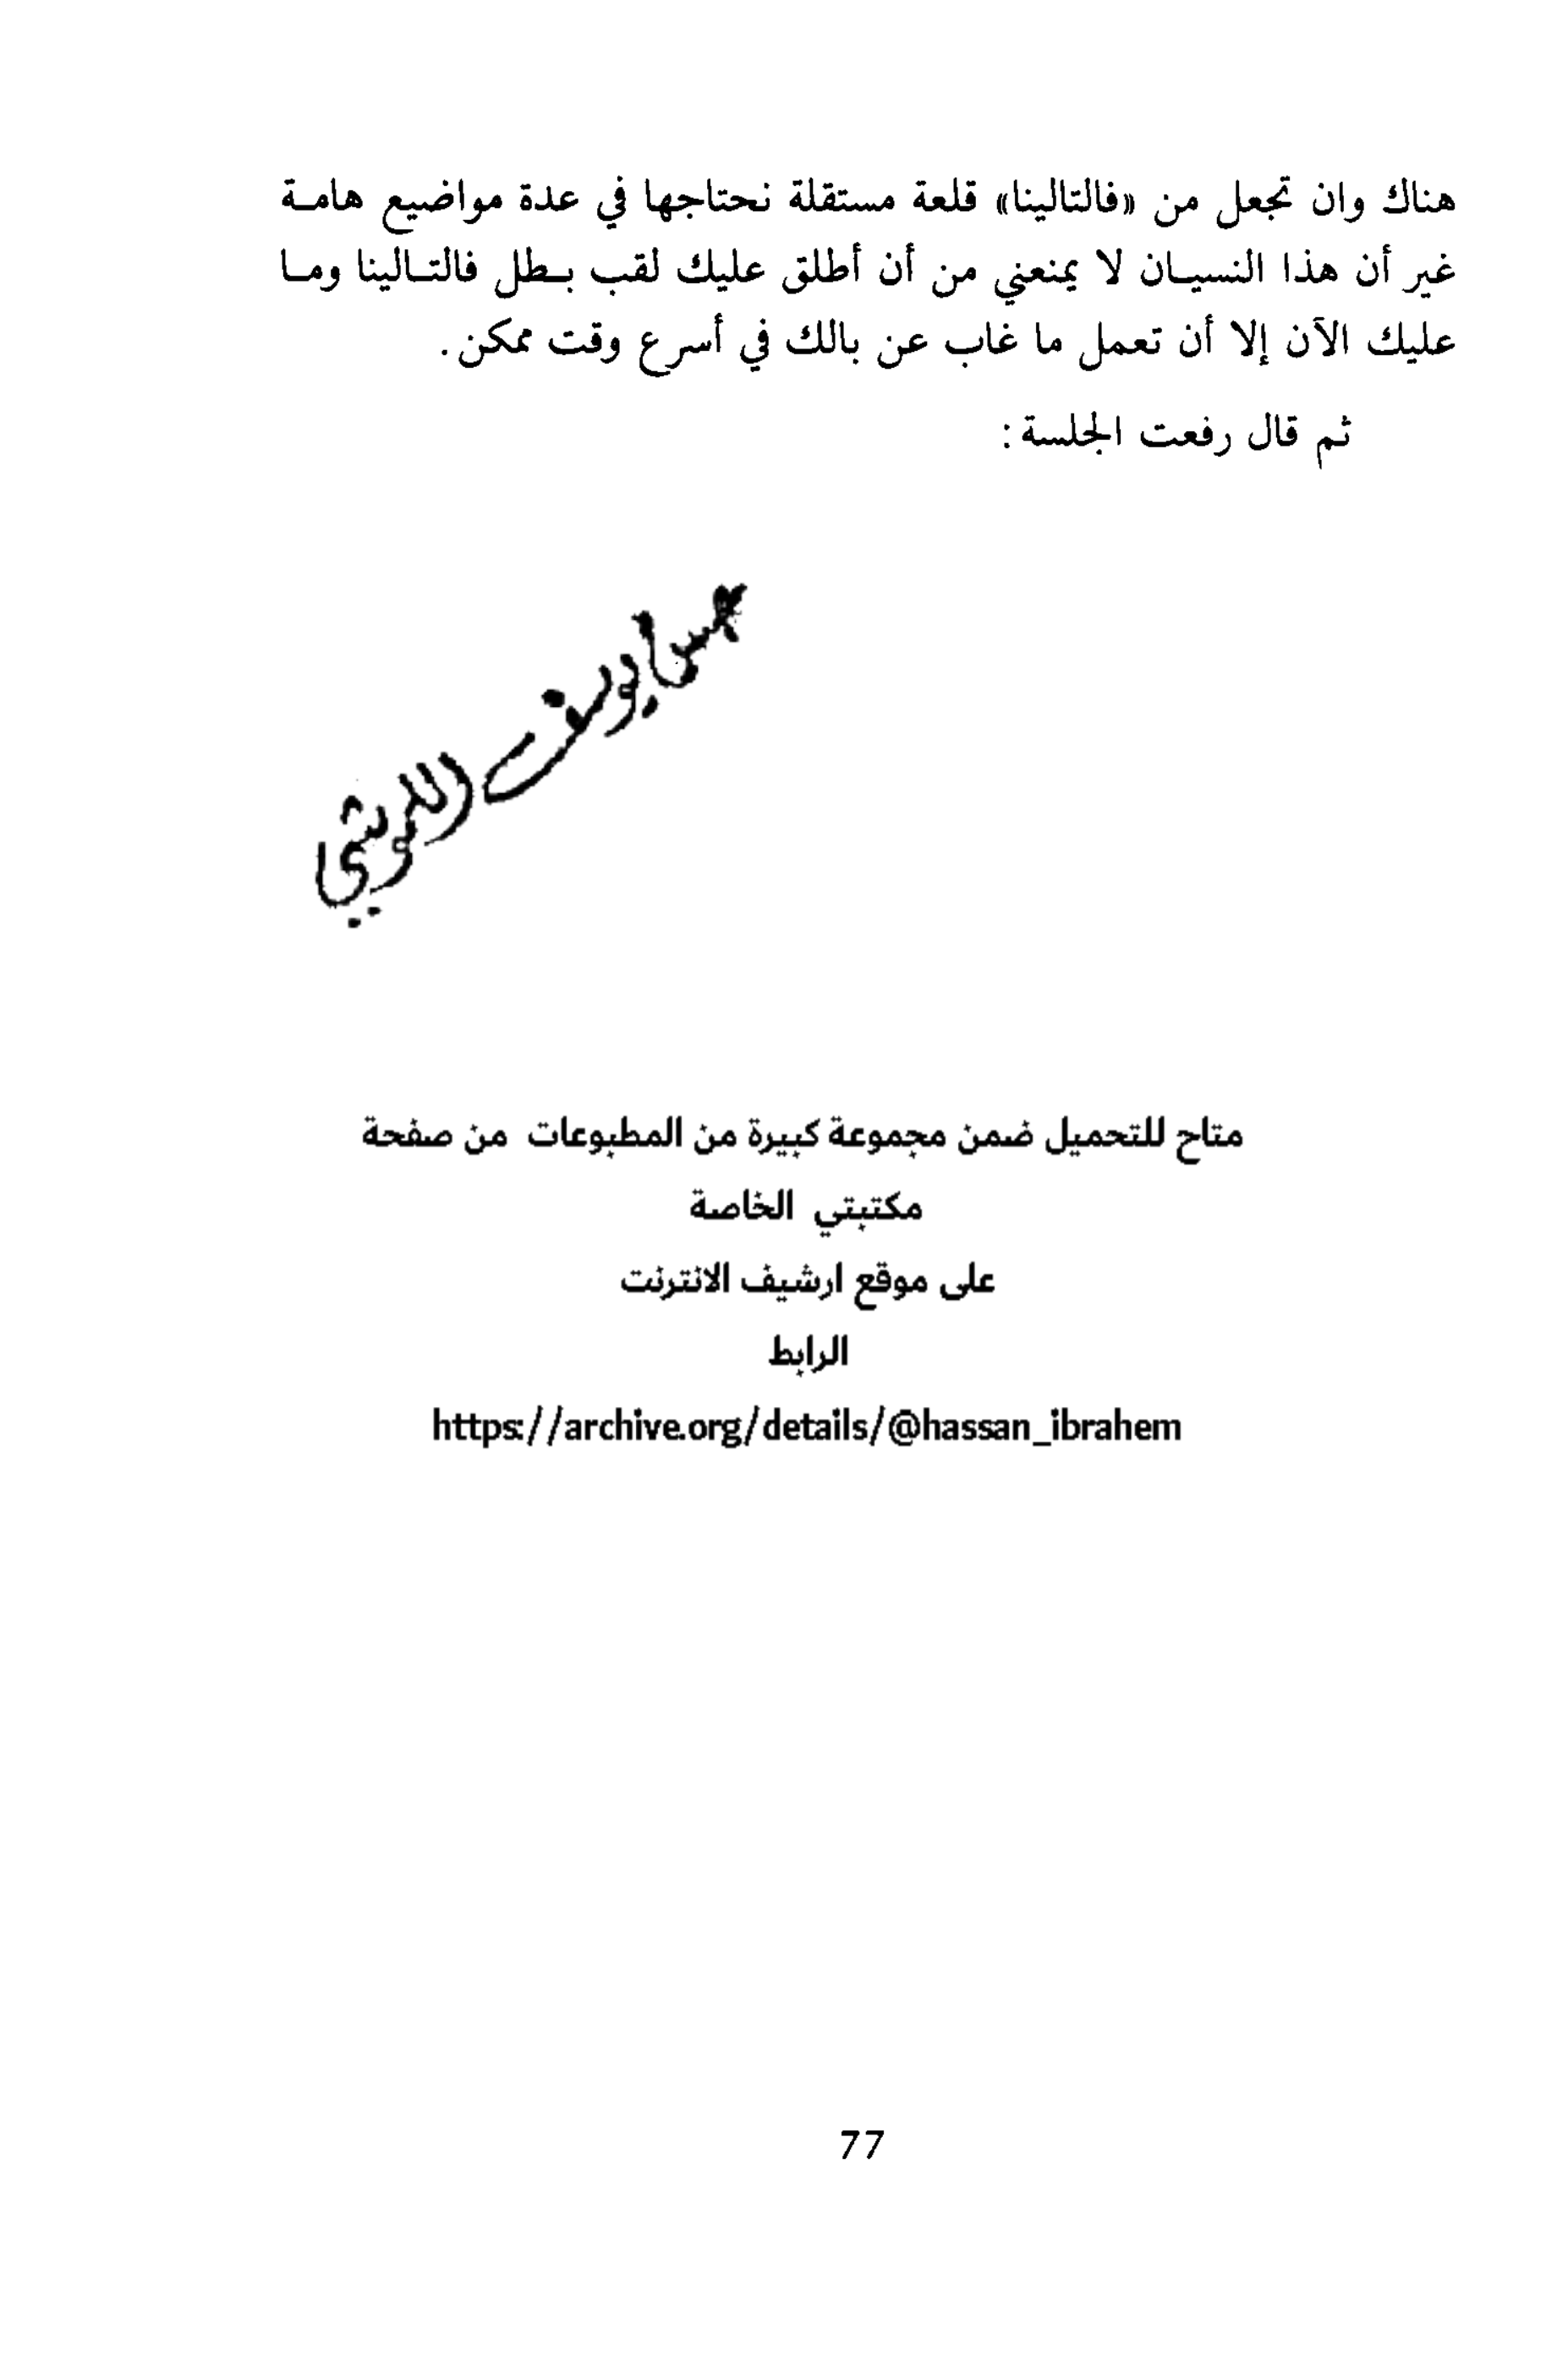 هناك وان تجعل من «فالتالينا» قلعة مستقلة نحتاجها في عدة مواضيع هامـة
غير أن هذا النسيـان لا يمنعني من أن أطلق عليك لقب بـطل فالتـالينا ومـا
عليك الآن إلا أن تعمل ما غاب عن بالك في أسرع وقت ممكن.
ثم قال رفعت الجلسة:
يوسف
متاح للتحميل ضمن مجموعة كبيرة من المطبوعات من صفحة
مكتبتي الخاصة
على موقع ارشيف الانترنت
الرابط
https://archive.org/details/@hassan_ibrahem
77